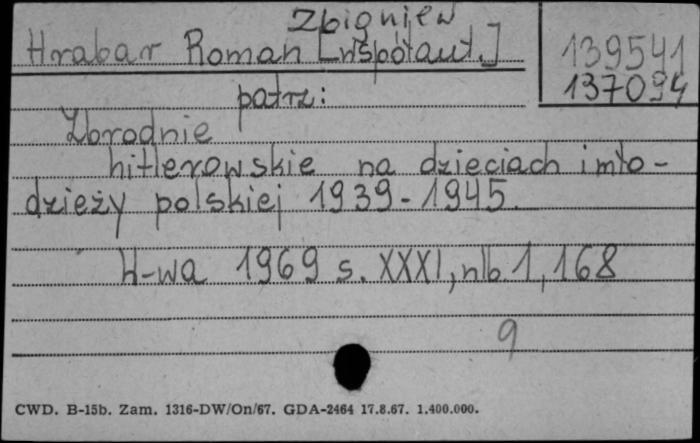 Zbigniew
Hrabar Roman [współaut.]
139541
137094
patrz:
Zbrodnie
hitlerowskie na dzieciach i mło-
dzieży polskiej 1939-1945.
W-wa 1969 s. XXXI, nlb. 1, 168
9
CWD. B-15b. Zam. 1316-DW/On/67. GDA-2464 17.8.67. 1.400.000.